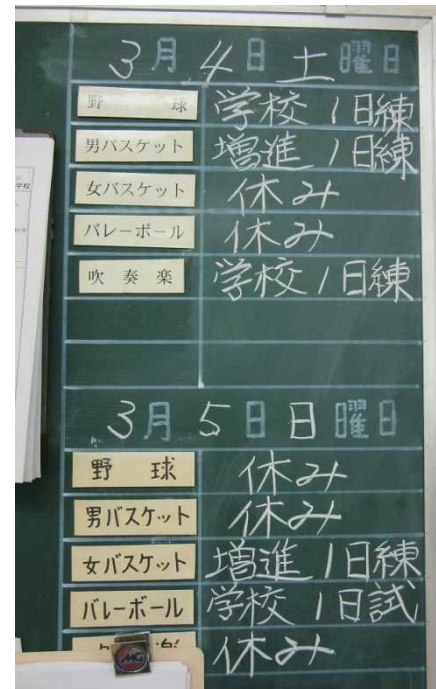 3月4日土曜日
野球 学校1日練
男バスケット 増進1日練
女バスケット 休み
バレーボール 休み
吹奏楽 学校1日練
3月5日日曜日
野球 休み
男バスケット 休み
女バスケット 増進1日練
バレーボール 学校1日試
休み